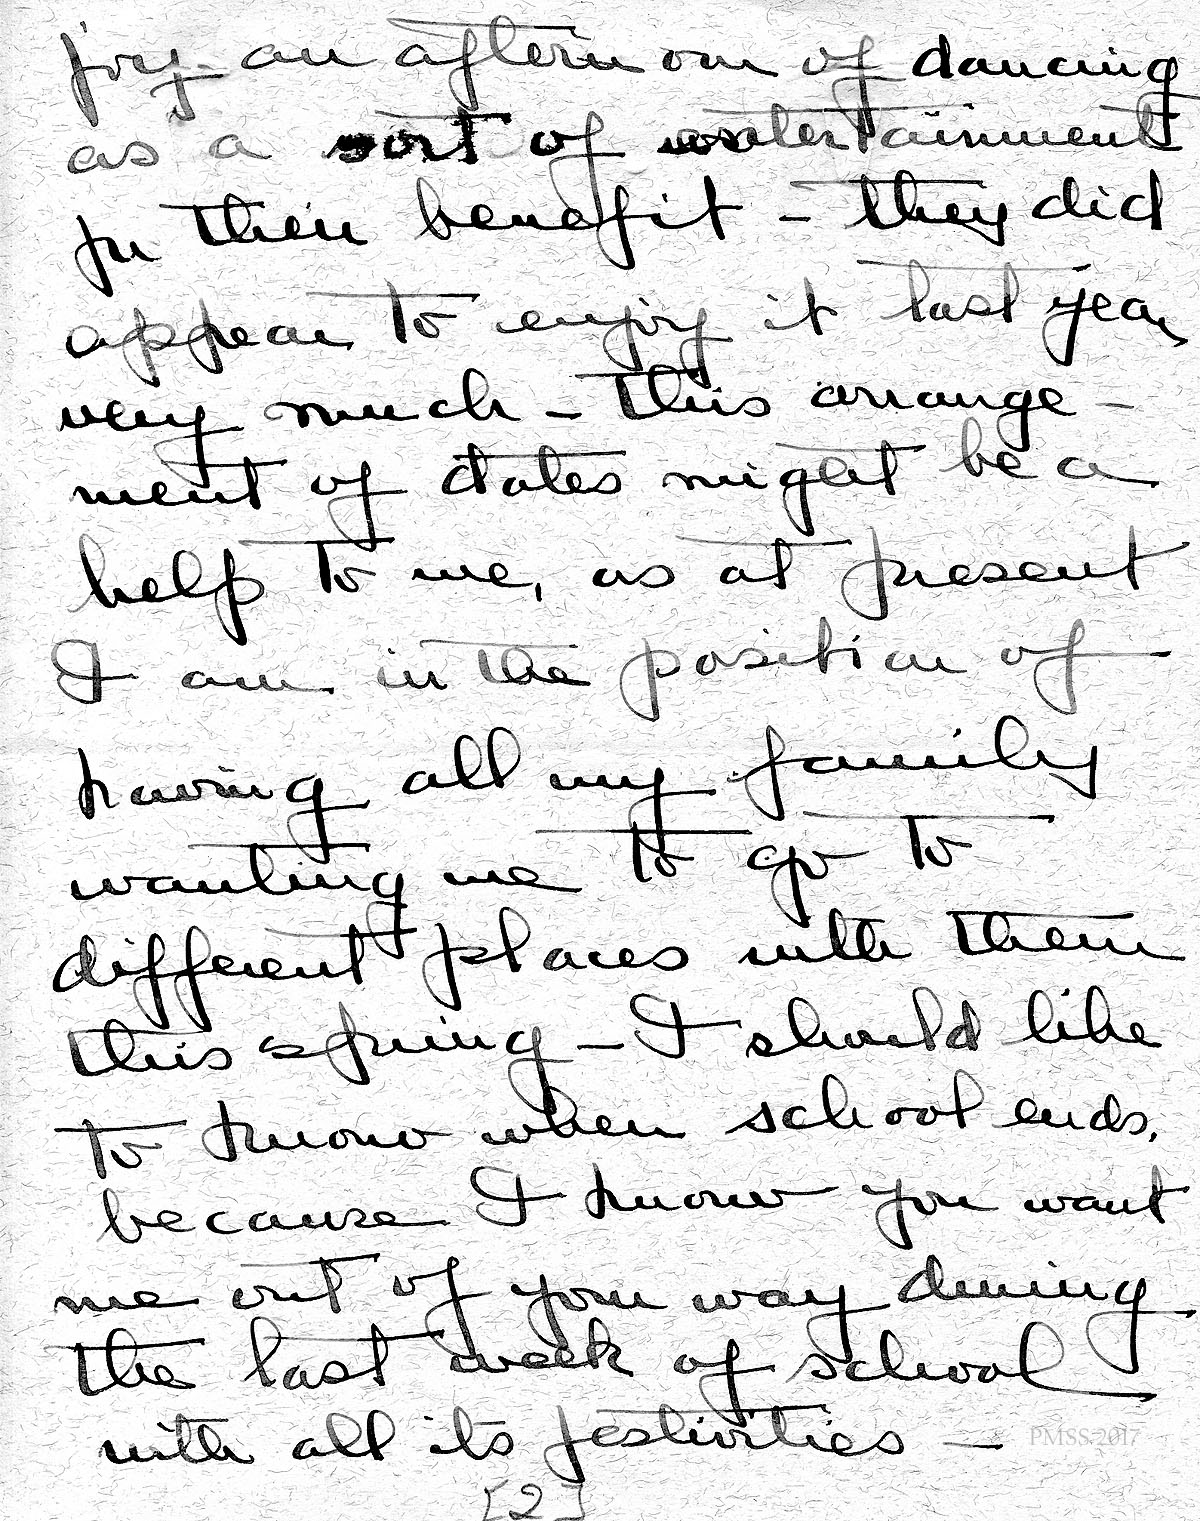 joy an afternoon of dancing
as a sort of entertainment
for their benefit – they did
appear to enjoy it last year
very much – this arrange-
ment of dates might be a
help to me, as at present
I am in the position of
having all my family
wanting me to go to
different places with them
this spring – I should like
to know when school ends,
because I know you want
me out of your way during
the last week of school
with all its festivities –
PMSS 2017
[2]